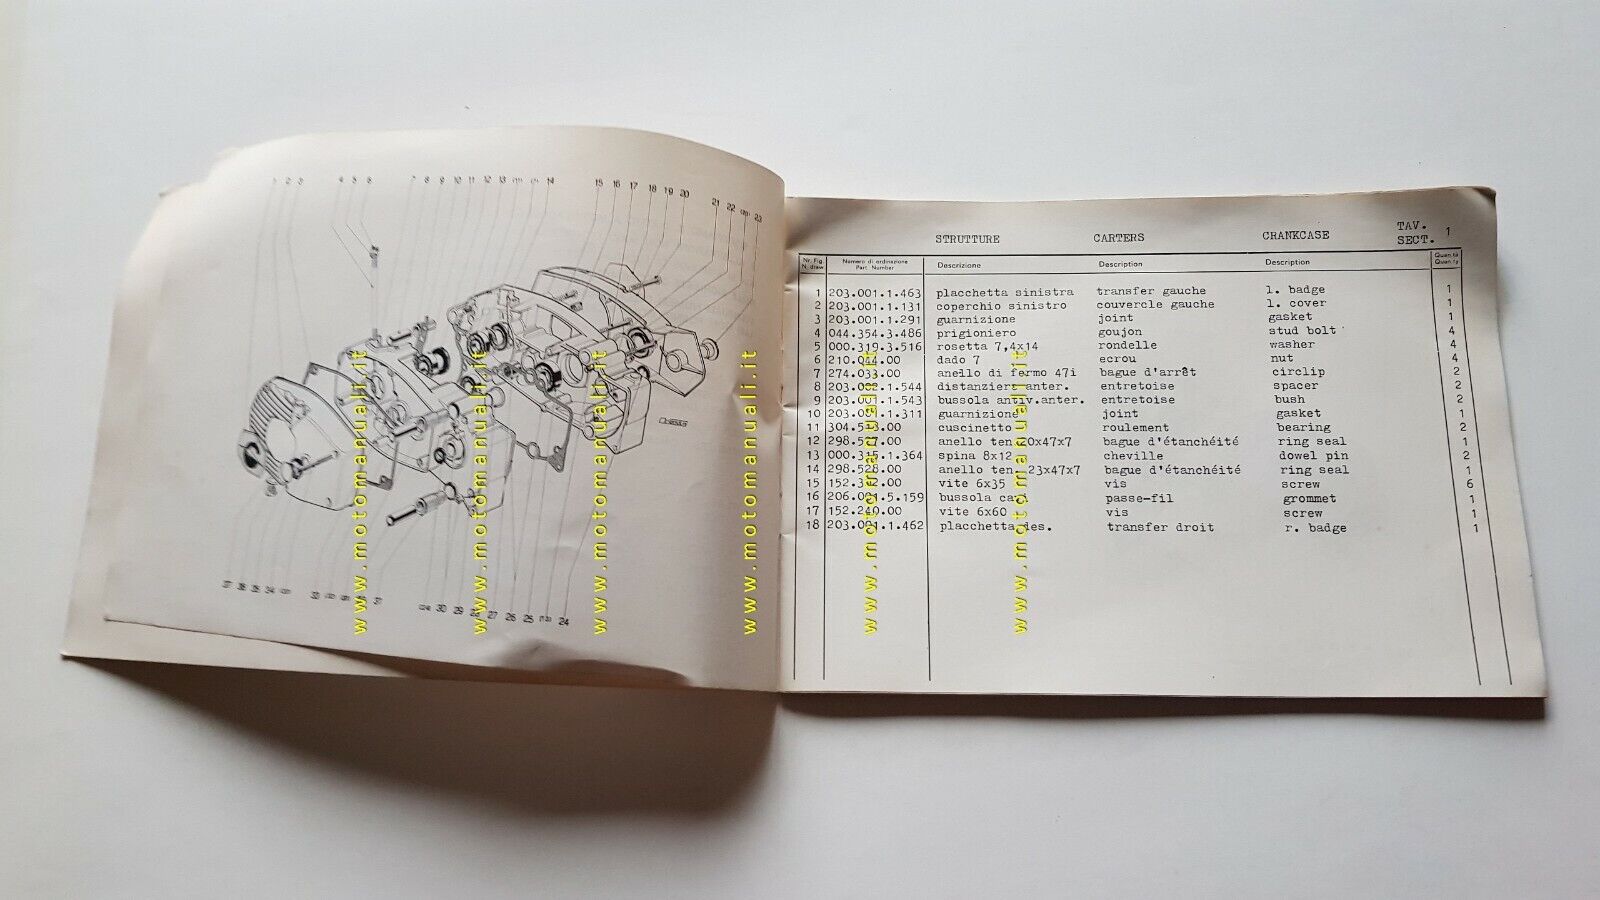 1 2 3 4 5 6 7 8 9 10 11 12 13 14 15 16 17 18 19 20 21 22 23
37 31 30 29 28 27 26 25 24
www.motomanuali.it
www.motomanuali.it
www.motomanuali.it
www.motomanuali.it
www.motomanuali.it
www.motomanuali.it
STRUTTURE CARTERS CRANKCASE TAV. SECT. 1
Nr. Fig. N. draw Numero di ordinazione Part. Number Descrizione Description Description Quan.tà Quan.ty
1 203.001.1.463 placchetta sinistra transfer gauche l. badge 1
2 203.001.1.131 coperchio sinistro couvercle gauche l. cover 1
3 203.001.1.291 guarnizione joint gasket 1
4 044.354.3.486 prigioniero goujon stud bolt 4
5 000.319.3.516 rosetta 7,4x14 rondelle washer 4
6 210.044.00 dado 7 ecrou nut 4
7 274.033.00 anello di fermo 47i bague d'arrêt circlip 2
8 203.002.1.544 distanziere anter. entretoise spacer 2
9 203.001.1.543 bussola antiv.anter. entretoise bush 2
10 203.001.1.311 guarnizione joint gasket 1
11 cuscinetto roulement bearing 2
12 298.527.00 anello ten. 20x47x7 bague d'étanchéité ring seal 1
13 000.315.1.364 spina 8x12 cheville dowel pin 2
14 298.528.00 anello ten. 23x47x7 bague d'étanchéité ring seal 1
15 vite 6x35 vis screw 6
16 206.001.5.159 bussola passe-fil grommet 1
17 152.240.00 vite 6x60 vis screw 1
18 203.001.1.462 placchetta des. transfer droit r. badge 1